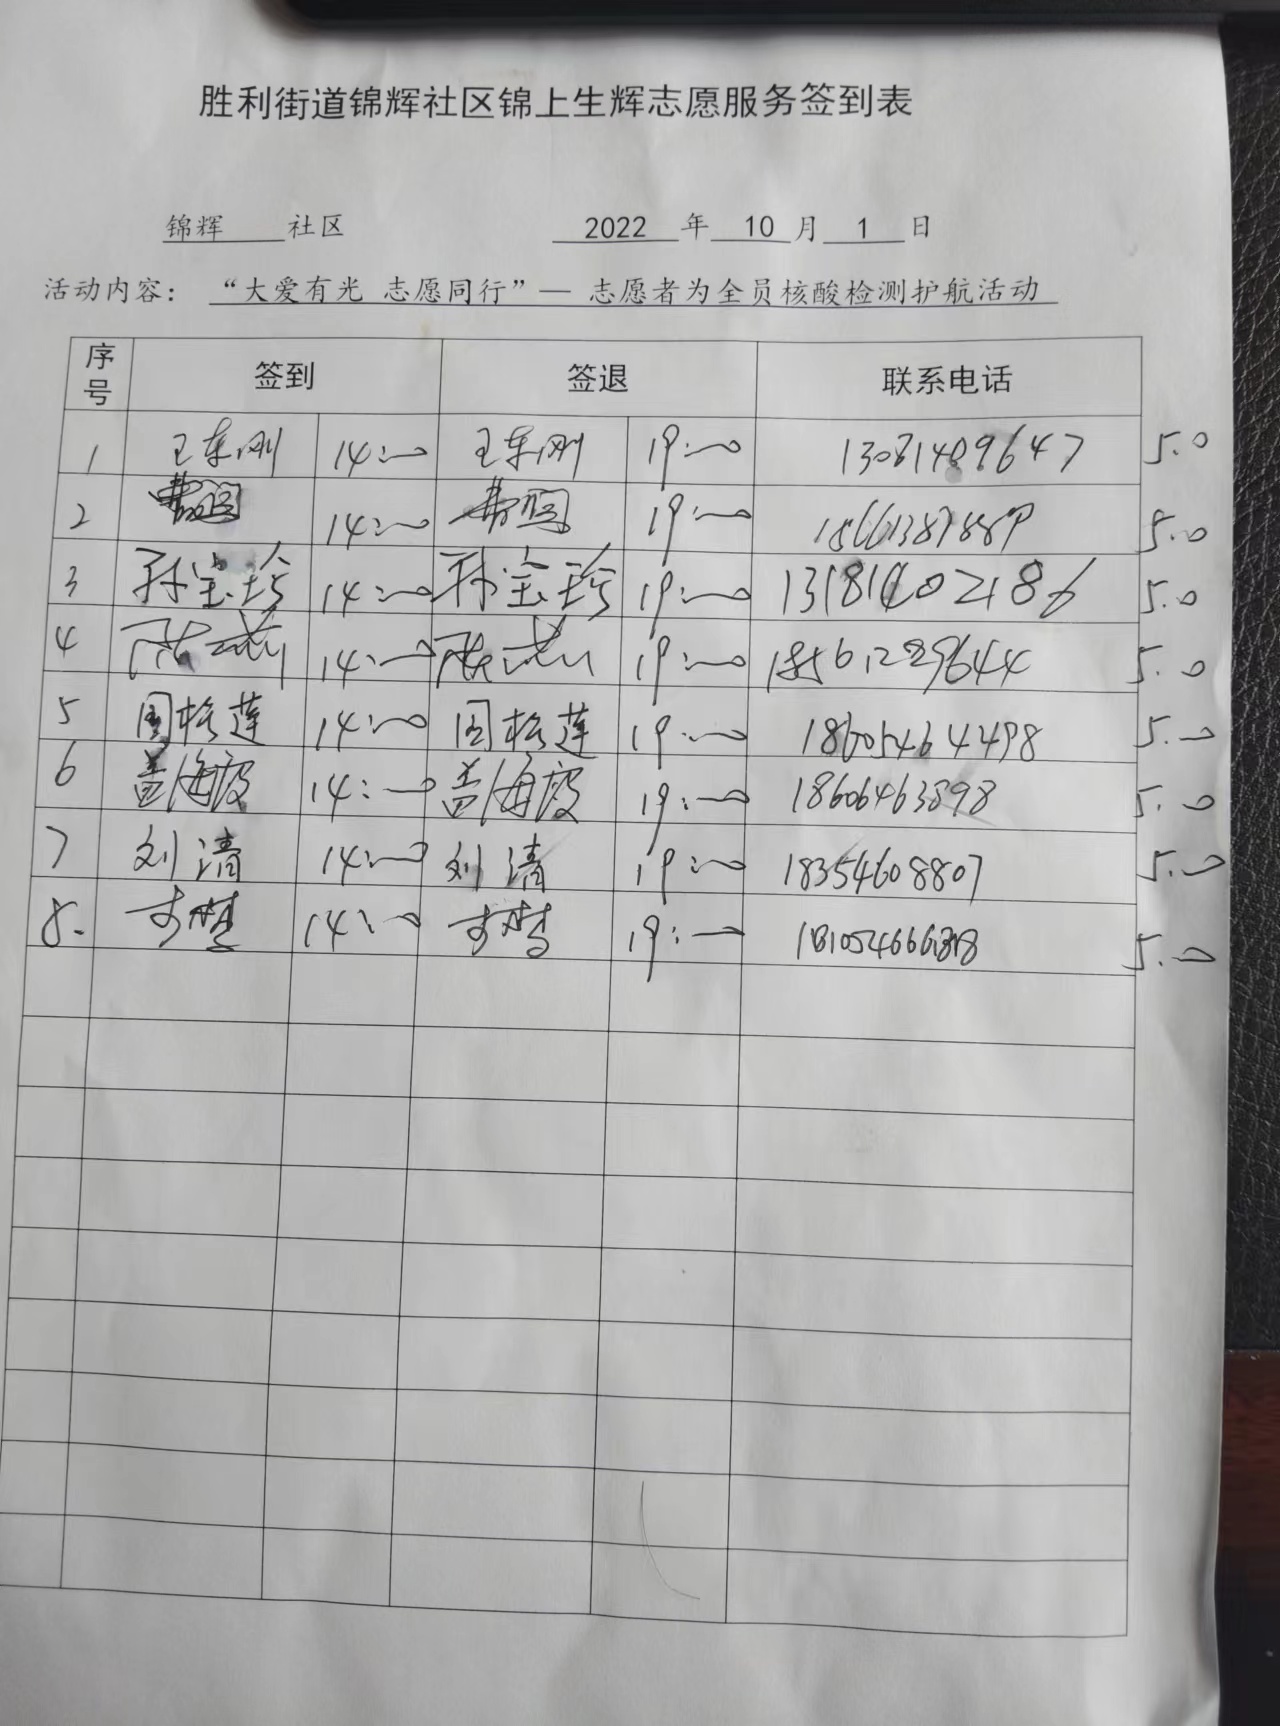 胜利街道锦辉社区锦上生辉志愿服务签到表
锦辉 社区 2022 年 10 月 1 日
活动内容： “大爱有光 志愿同行”— 志愿者为全员核酸检测护航活动
序号 签到 签退 联系电话
1 王东刚 14:00 王东刚 19:00 13081409647 5.0
2 14:00 19:00 5.0
3 孙宝珍 14:00 孙宝珍 19:00 5.0
4 14:00 19:00 18561229644 5.0
5 周格莲 14:00 周格莲 19:00 18605464498 5.0
6 盖海霞 14:00 盖海霞 19:00 18606463898 5.0
7 刘清 14:00 刘清 19:00 18354608807 5.0
8. 14:00 19:00 5.0